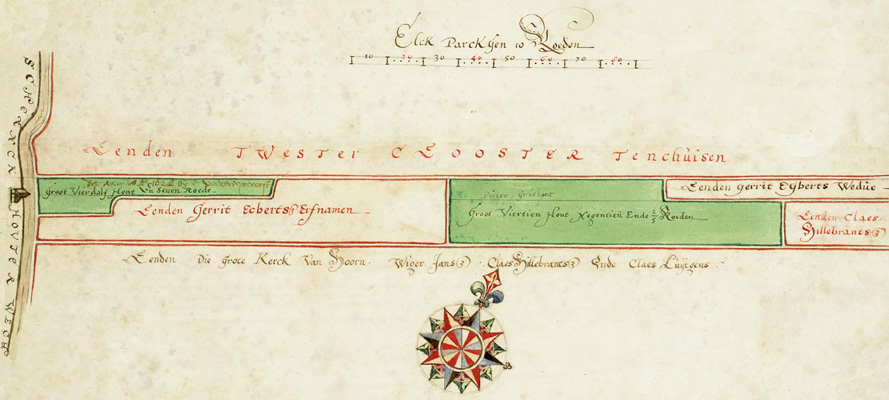 Elck Parck Hen 10 Roeden
10 20 30 40 50 60 70 80
Eenden TWester CLOOSTER Tenchuisen
groot Vierdalf Hont Un Seven Roede
Eenden Gerrit Ecberts Erfnamen
Groot Viertien Hont Negentien Ende 2/5 Roeden
Eenden Gerrit Egberts Wedue
Eenden Claes
Hillebrants
Eenden Die grote Kerck Van Hoorn Wiger Jans Claes Hillebrants Ende Claes Luytgens
HOUTER WECH